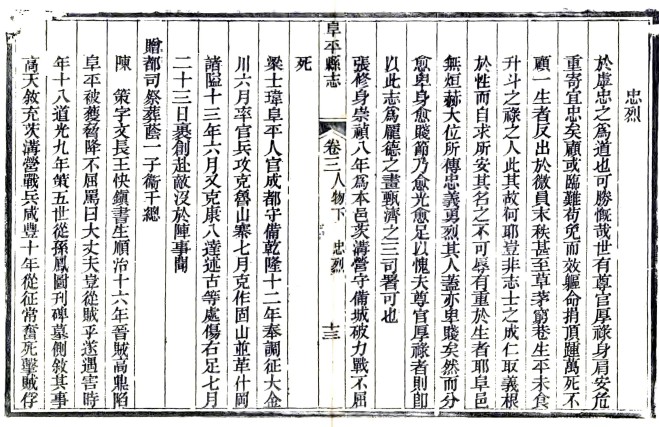 忠烈
於虖忠之爲道也可勝慨哉世有尊官厚祿身肩安危
重寄宜忠矣顧或臨難苟免而效軀命捐頂踵萬死不
顧一生者反出於微員末秩甚至草茅窮巷生平未食
升斗之祿之人此其故何耶豈非志士之成仁取義根
於性而自求所安其名之不可辱有重於生者耶阜邑
無烜赫大位所傳忠義勇烈其人蓋亦卑賤矣然而分
愈卑身愈賤節乃愈光愈足以愧夫尊官厚祿者則卽
以此志爲龐德之畫甄濟之三司署可也
張修身崇禎八年爲本邑茨溝營守備城破力戰不屈
死
阜平縣志
卷三
人物下
忠烈
十三
梁士瑋阜平人官成都守備乾隆十二年奉調征大金
川六月率官兵攻克魯山寨七月克作固山並革什岡
諸隘十三年六月又克康八達述古等處傷右足七月
二十三日裹創赴敵沒於陣事聞
贈都司祭葬蔭一子衞千總
陳策字文長王快鎭書生順治十六年晉賊高鼎陷
阜平被獲脅降不屈罵曰大丈夫豈從賊乎遂遇害時
年十八道光九年策五世從孫鳳圖刊碑墓側敘其事
高天敘充茨溝營戰兵咸豐十年從征常奮死擊賊俘